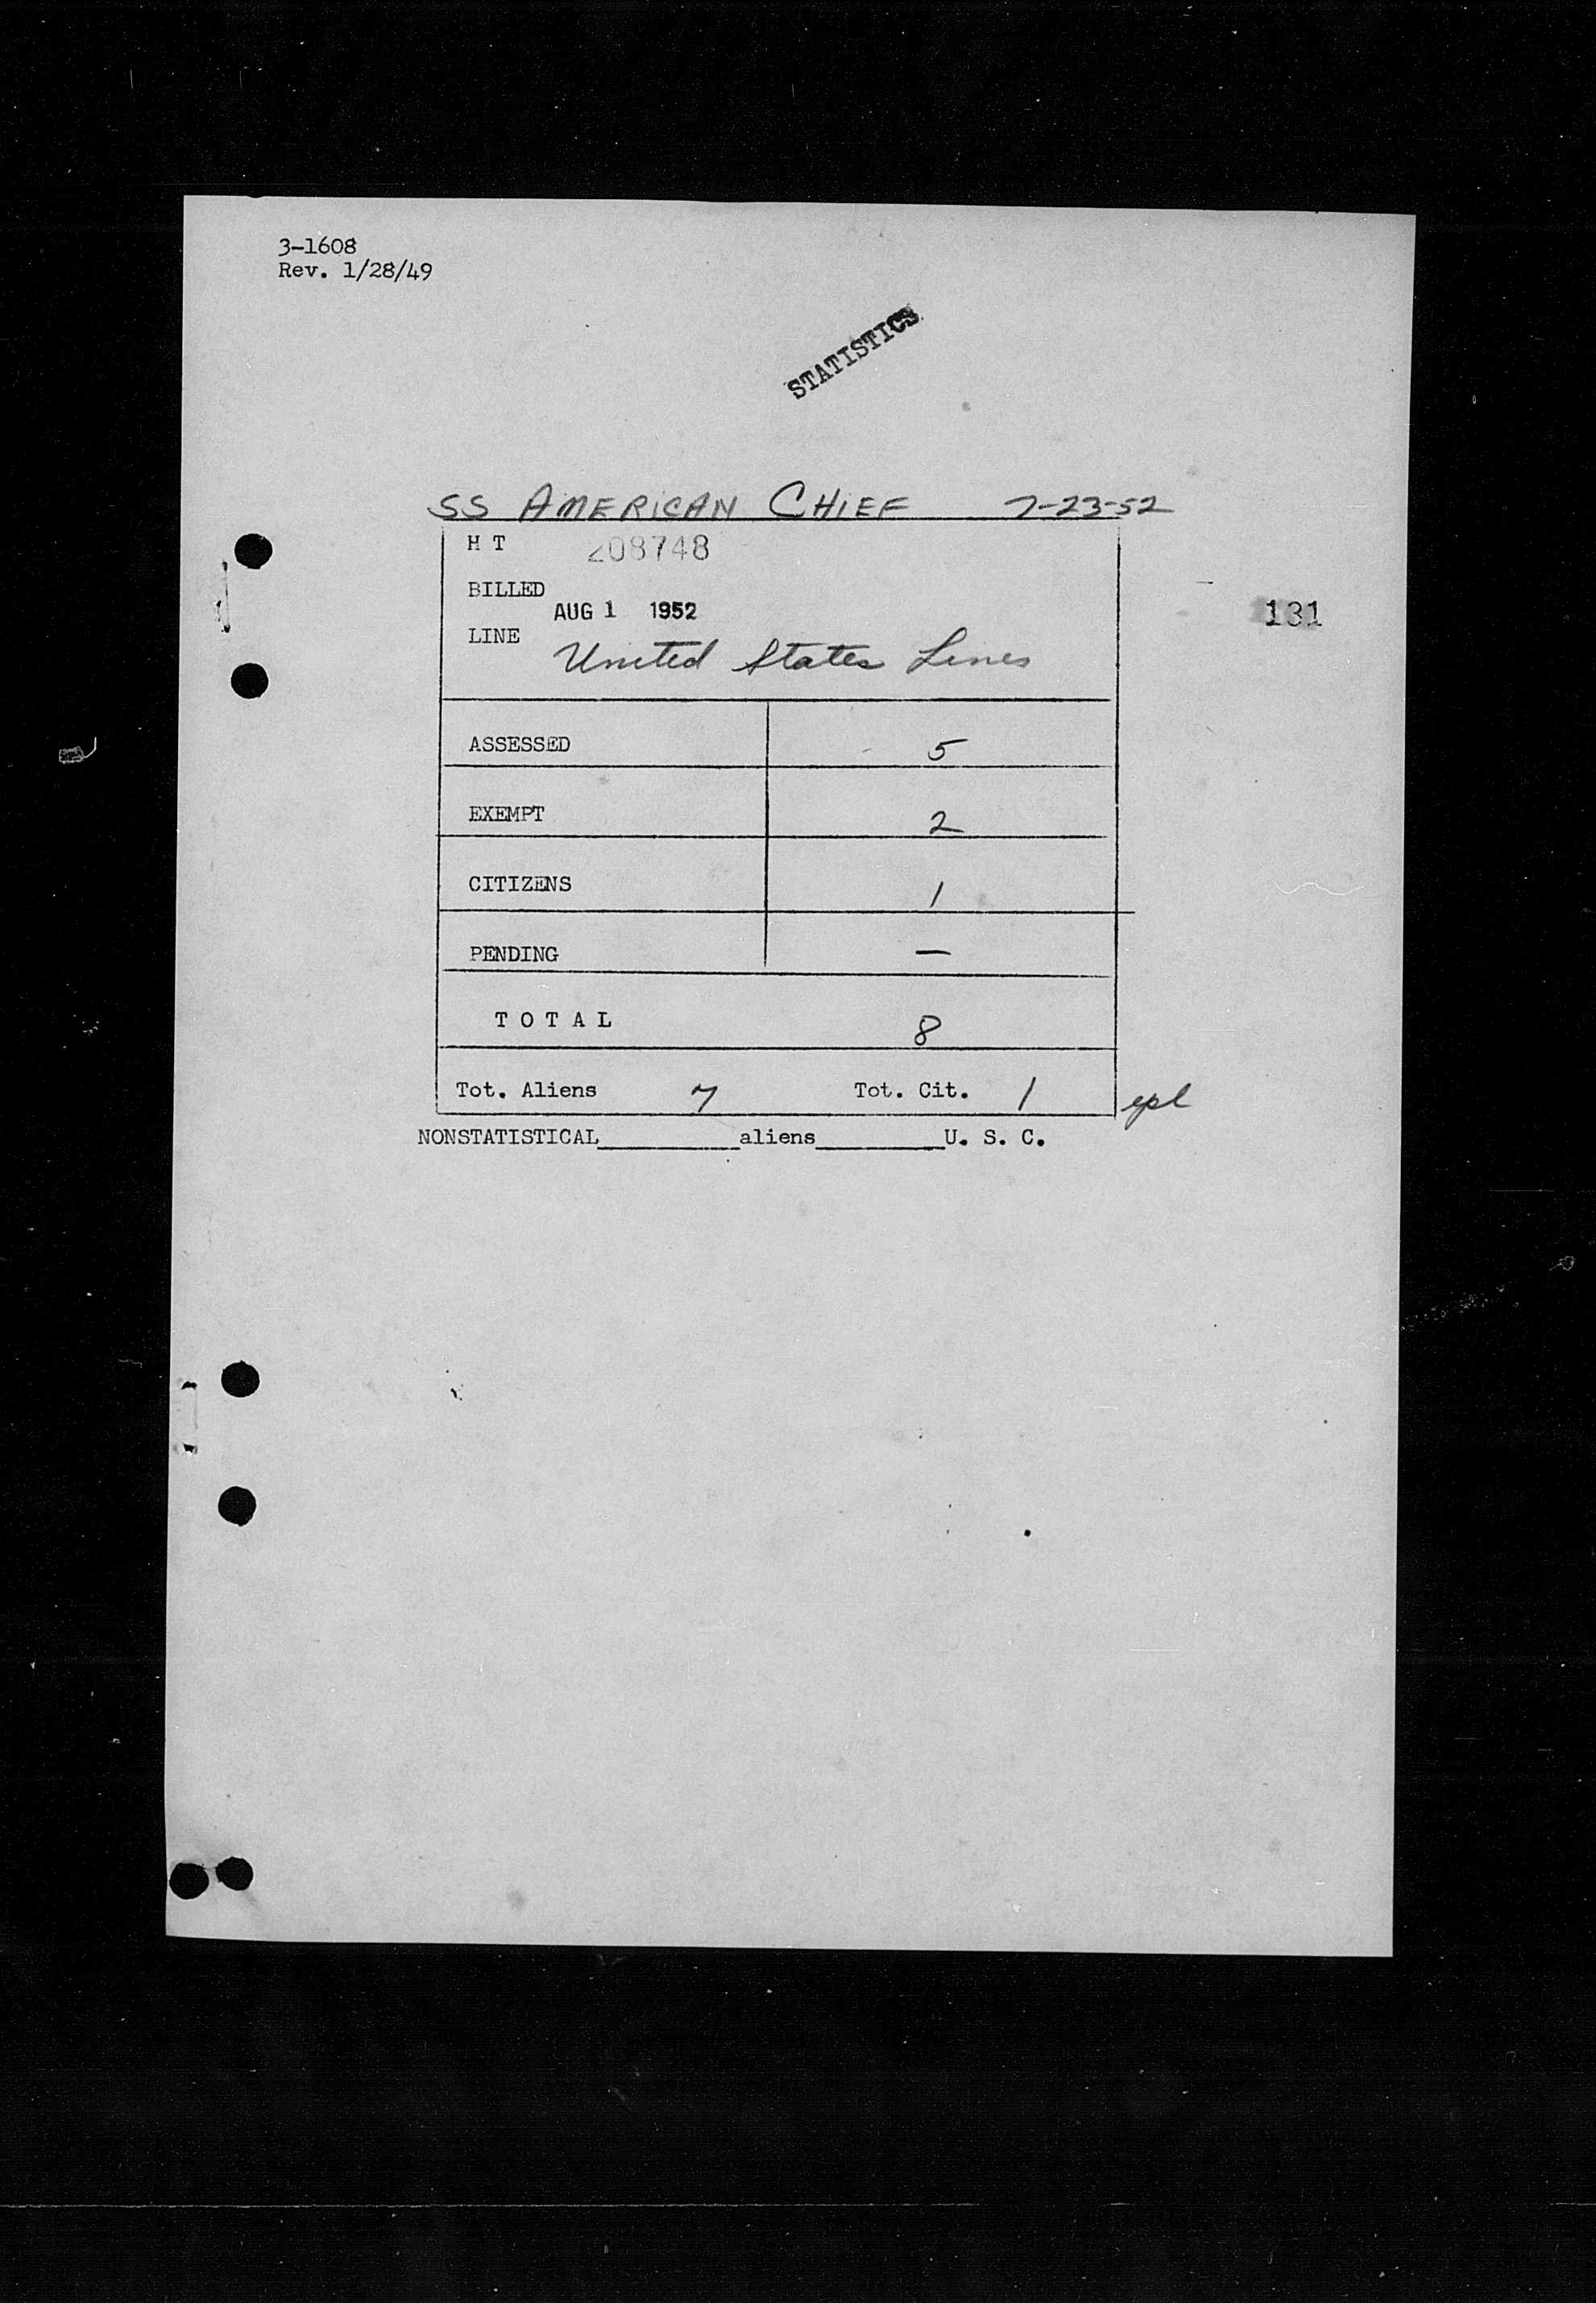 3-1608
Rev. 1/28/49
STATISTICS
SS AMERICAN CHIEF 7-23-52
H T 208748
BILLED
AUG 1 1952
LINE
United States Lines
131
ASSESSED 5
EXEMPT 2
CITIZENS 1
PENDING —
T O T A L 8
Tot. Aliens 7 Tot. Cit. 1
NONSTATISTICAL__________aliens__________U. S. C.